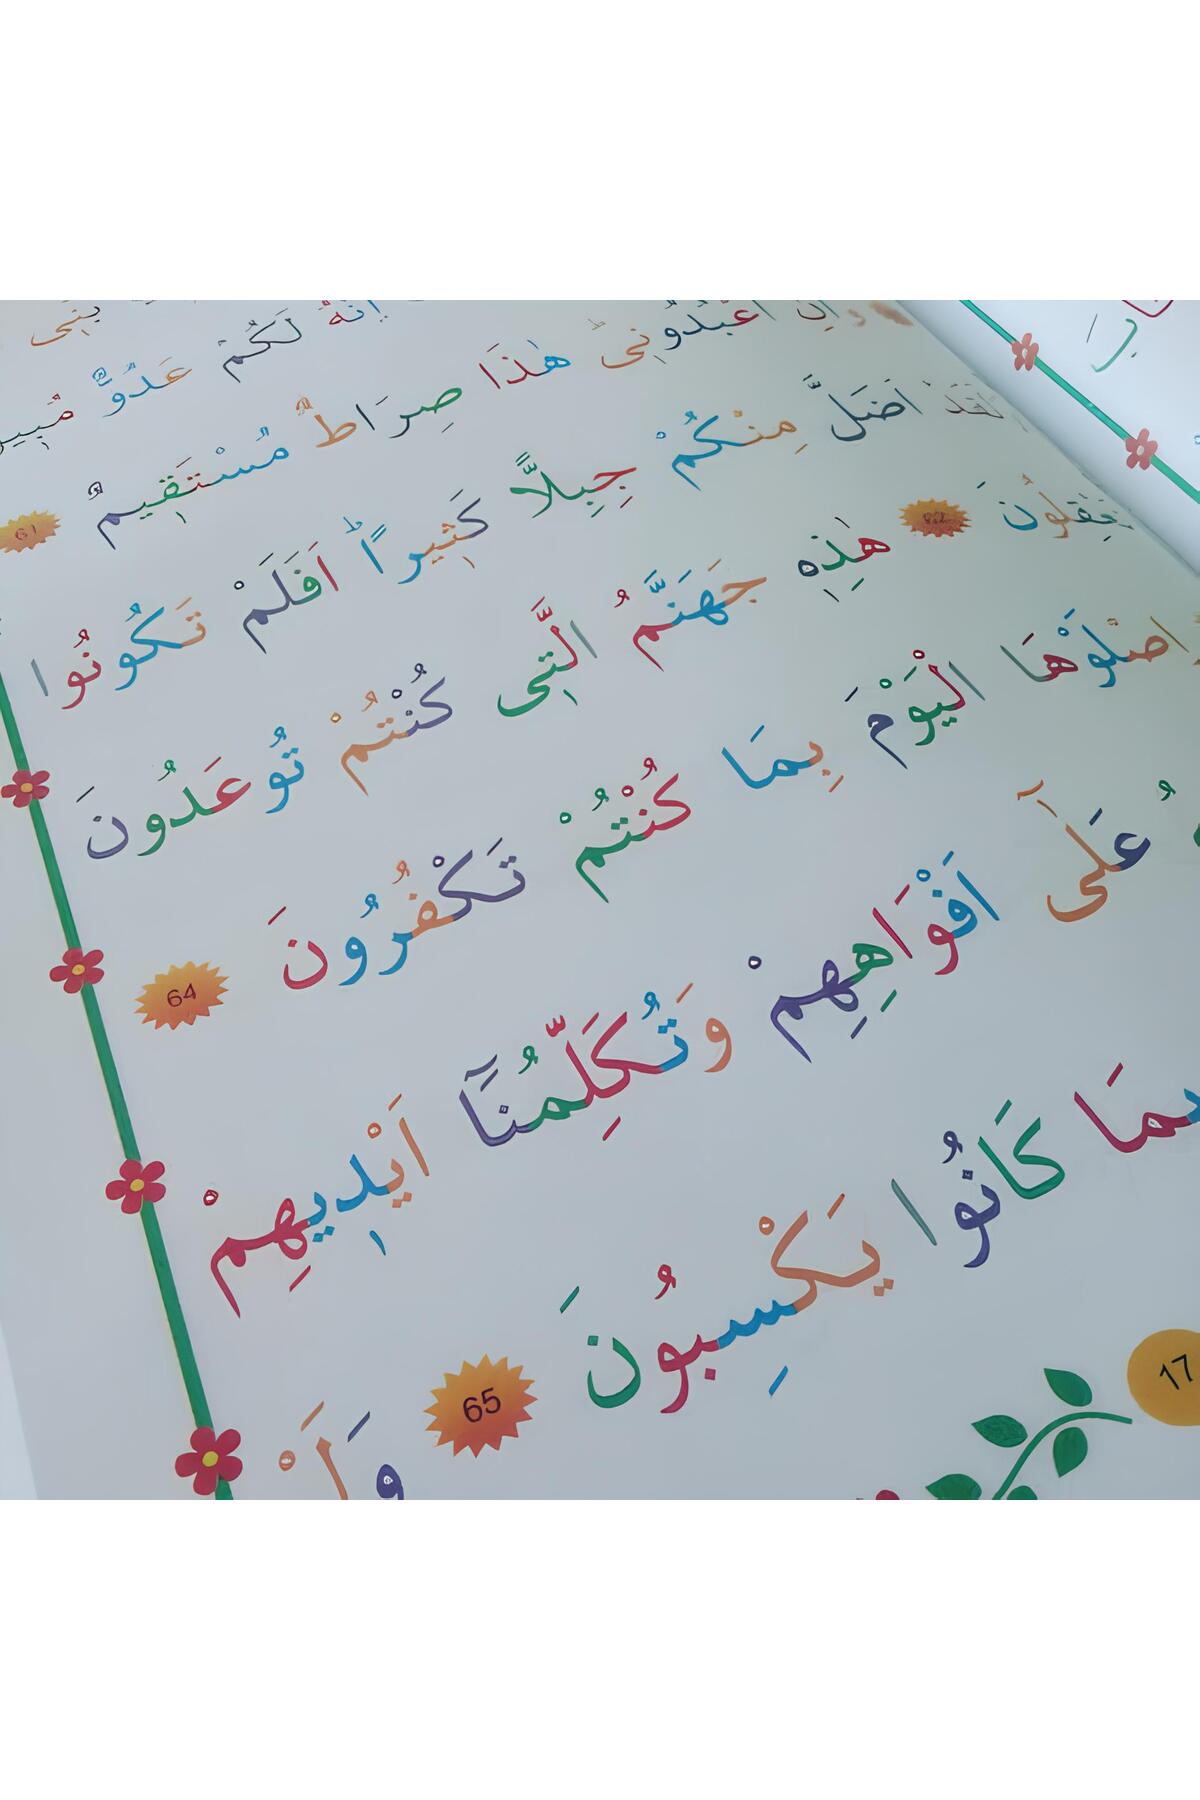 اِنَّهُ لَكُمْ عَدُوٌّ مُبِينٌ
اعْبُدُونِى هٰذَا صِرَاطٌ مُسْتَقِيمٌ 61
اَضَلَّ مِنْكُمْ جِبِلًّا كَثِيرًا اَفَلَمْ تَكُونُوا
تَعْقِلُونَ 62 هٰذِهِ جَهَنَّمُ الَّتِى كُنْتُمْ تُوعَدُونَ
اِصْلَوْهَا الْيَوْمَ بِمَا كُنْتُمْ تَكْفُرُونَ 64
عَلٰٓى اَفْوَاهِهِمْ وَتُكَلِّمُنَٓا اَيْدِيهِمْ
بِمَا كَانُوا يَكْسِبُونَ 65 وَلَوْ
17